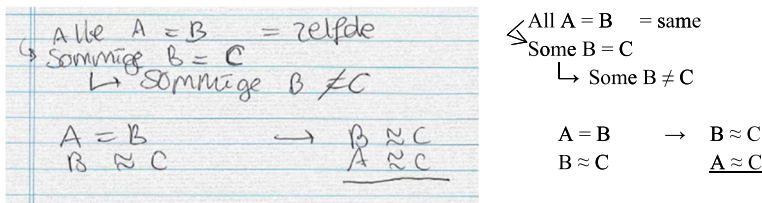 Alle A = B = zelfde
↳ Sommige B = C
↳ Sommige B ≠ C
A = B → B ≈ C
B ≈ C A ≈ C
All A = B = same
Some B = C
↳ Some B ≠ C
A = B → B ≈ C
B ≈ C A ≈ C